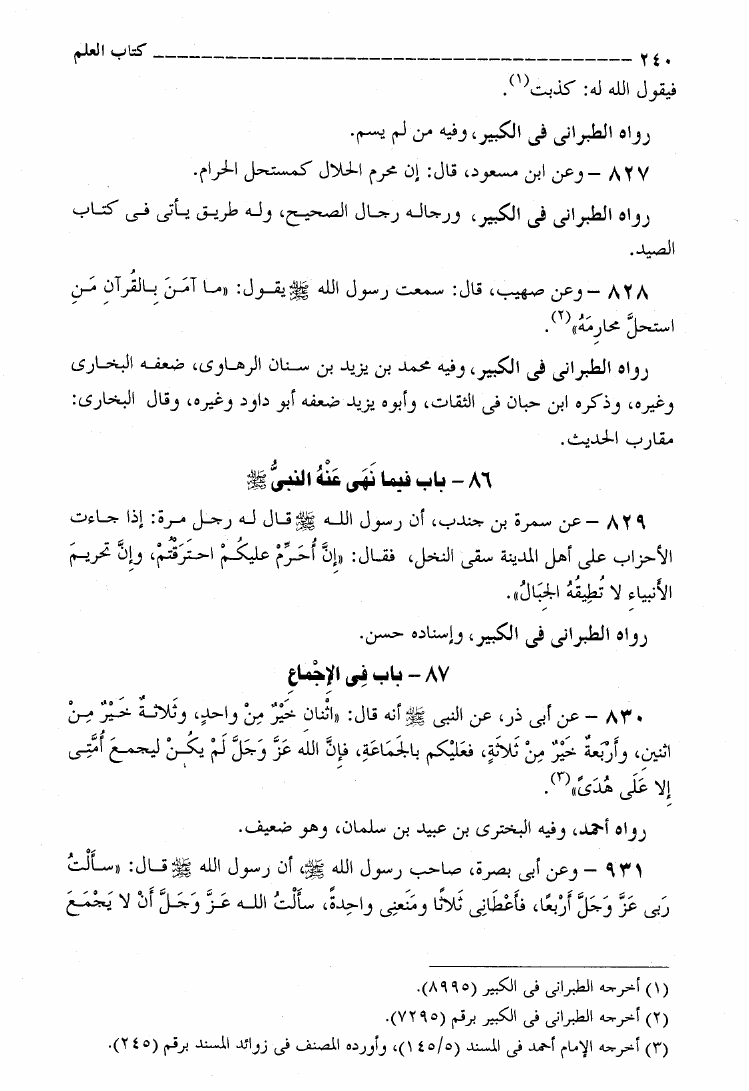 ٢٤٠ ــــــــــــــــــــــــــــــــــــــــــــــــــــ كتاب العلم
فيقول الله له: كذبت(١).
رواه الطبرانى فى الكبير، وفيه من لم يسم.
٨٢٧ – وعن ابن مسعود، قال: إن محرم الحلال كمستحل الحرام.
رواه الطبرانى فى الكبير، ورجاله رجال الصحيح، وله طريق يأتى فى كتاب
الصيد.
٨٢٨ – وعن صهيب، قال: سمعت رسول الله ﷺ يقول: «ما آمَنَ بِالقُرآنِ مَنِ
استحلَّ محارِمَهُ»(٢).
رواه الطبرانى فى الكبير، وفيه محمد بن يزيد بن سنان الرهاوى، ضعفه البخارى
وغيره، وذكره ابن حبان فى الثقات، وأبوه يزيد ضعفه أبو داود وغيره، وقال البخارى:
مقارب الحديث.
٨٦ – باب فيما نَهَى عَنْهُ النبىُّ ﷺ
٨٢٩ – عن سمرة بن جندب، أن رسول الله ﷺ قال له رجل مرة: إذا جاءت
الأحزاب على أهل المدينة سقى النخل، فقال: «إنَّ أُحَرِّمْ عليكُمْ احتَرَقْتُمْ، وإنَّ تحريمَ
الأنبياءِ لا تُطِيقُهُ الجِبَالُ».
رواه الطبرانى فى الكبير، وإسناده حسن.
٨٧ – باب فى الإِجْماعِ
٨٣٠ – عن أبى ذر، عن النبى ﷺ أنه قال: «اثْنانِ خَيْرٌ مِنْ واحدٍ، وثَلاثةٌ خَيْرٌ مِنْ
اثنين، وأَرْبَعةٌ خَيْرٌ مِنْ ثَلاثَةٍ، فعَليْكم بالجَمَاعَةِ، فإنَّ الله عَزَّ وَجَلَّ لَمْ يكُنْ ليجمعَ أُمَّتِى
إلا عَلَى هُدَىً»(٣).
رواه أحمد، وفيه البخترى بن عبيد بن سلمان، وهو ضعيف.
٩٣١ – وعن أبى بصرة، صاحب رسول الله ﷺ، أن رسول الله ﷺ قال: «سألْتُ
رَبى عَزَّ وَجَلَّ أَرْبعًا، فأَعْطانِى ثَلاثًا ومَنَعنِى واحِدةً، سألْتُ الله عَزَّ وَجَلَّ أَنْ لا يَجْمَعَ
(١) أخرجه الطبرانى فى الكبير (٨٩٩٥).
(٢) أخرجه الطبرانى فى الكبير برقم (٧٢٩٥).
(٣) أخرجه الإمام أحمد فى المسند (١٤٥/٥)، وأورده المصنف فى زوائد المسند برقم (٢٤٥).